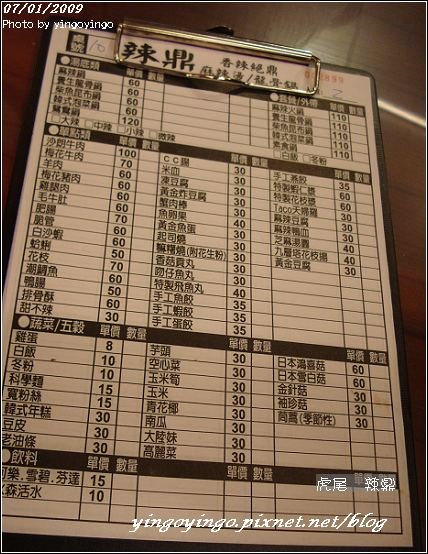 07/01/2009
Photo by yingoyingo
桌號 10
辣鼎
香辣絕鼎
麻辣燙/龍骨鍋
●湯底類 單價 數量
麻辣鍋 60
養生龍骨鍋 60
柴魚昆布鍋 60
韓式泡菜鍋 60
鴛鴦鍋 120
□大辣 □中辣 □小辣 □微辣
●套餐/外帶 單價 數量
麻辣火鍋 110
養生龍骨鍋 110
柴魚昆布鍋 110
韓式泡菜鍋 110
素食鍋 110
□白飯 □冬粉
●單點類 單價 數量 單價 數量 單價 數量
沙朗牛肉 100
梅花牛肉 70
羊肉 60
梅花豬肉 60
雞腿肉 60
毛牛肚 60
肥腸 60
脆管 70
白沙蝦 60
蛤蜊 60
花枝 70
潮鯛魚 50
鴨腸 50
排骨酥 60
甜不辣 30
CC腸 30
米血 30
凍豆腐 30
黃金炸豆腐 30
蟹肉棒 30
魚卵果 40
黃金魚蛋 30
起司燒 30
糯糬燒(附花生粉) 30
香菇貢丸 30
吻仔魚丸 30
特製飛魚丸 40
手工魚餃 35
手工蝦餃 35
手工蛋餃 35
手工燕餃 35
特製蝦仁漿 60
特製花枝漿 60
Taco天婦羅 40
麻辣豆腐 30
麻辣鴨血 30
芝麻湯圓 30
九層塔花枝揚 40
黃金豆腐 30
●蔬菜/五穀 單價 數量 單價 數量 單價 數量
雞蛋 8
白飯 10
冬粉 10
科學麵 15
寬粉絲 15
韓式年糕 30
豆皮 30
老油條 30
芋頭 30
空心菜 30
玉米筍 30
玉米 30
青花椰 30
南瓜 30
大陸妹 30
高麗菜 30
日本鴻喜菇 60
日本雪白菇 60
金針菇 30
袖珍菇 30
茼蒿(季節性) 30
●飲料 單價 數量
可樂.雪碧.芬達 15
森活水 10
虎尾 辣鼎
yingoyingo.pixnet.net/blog